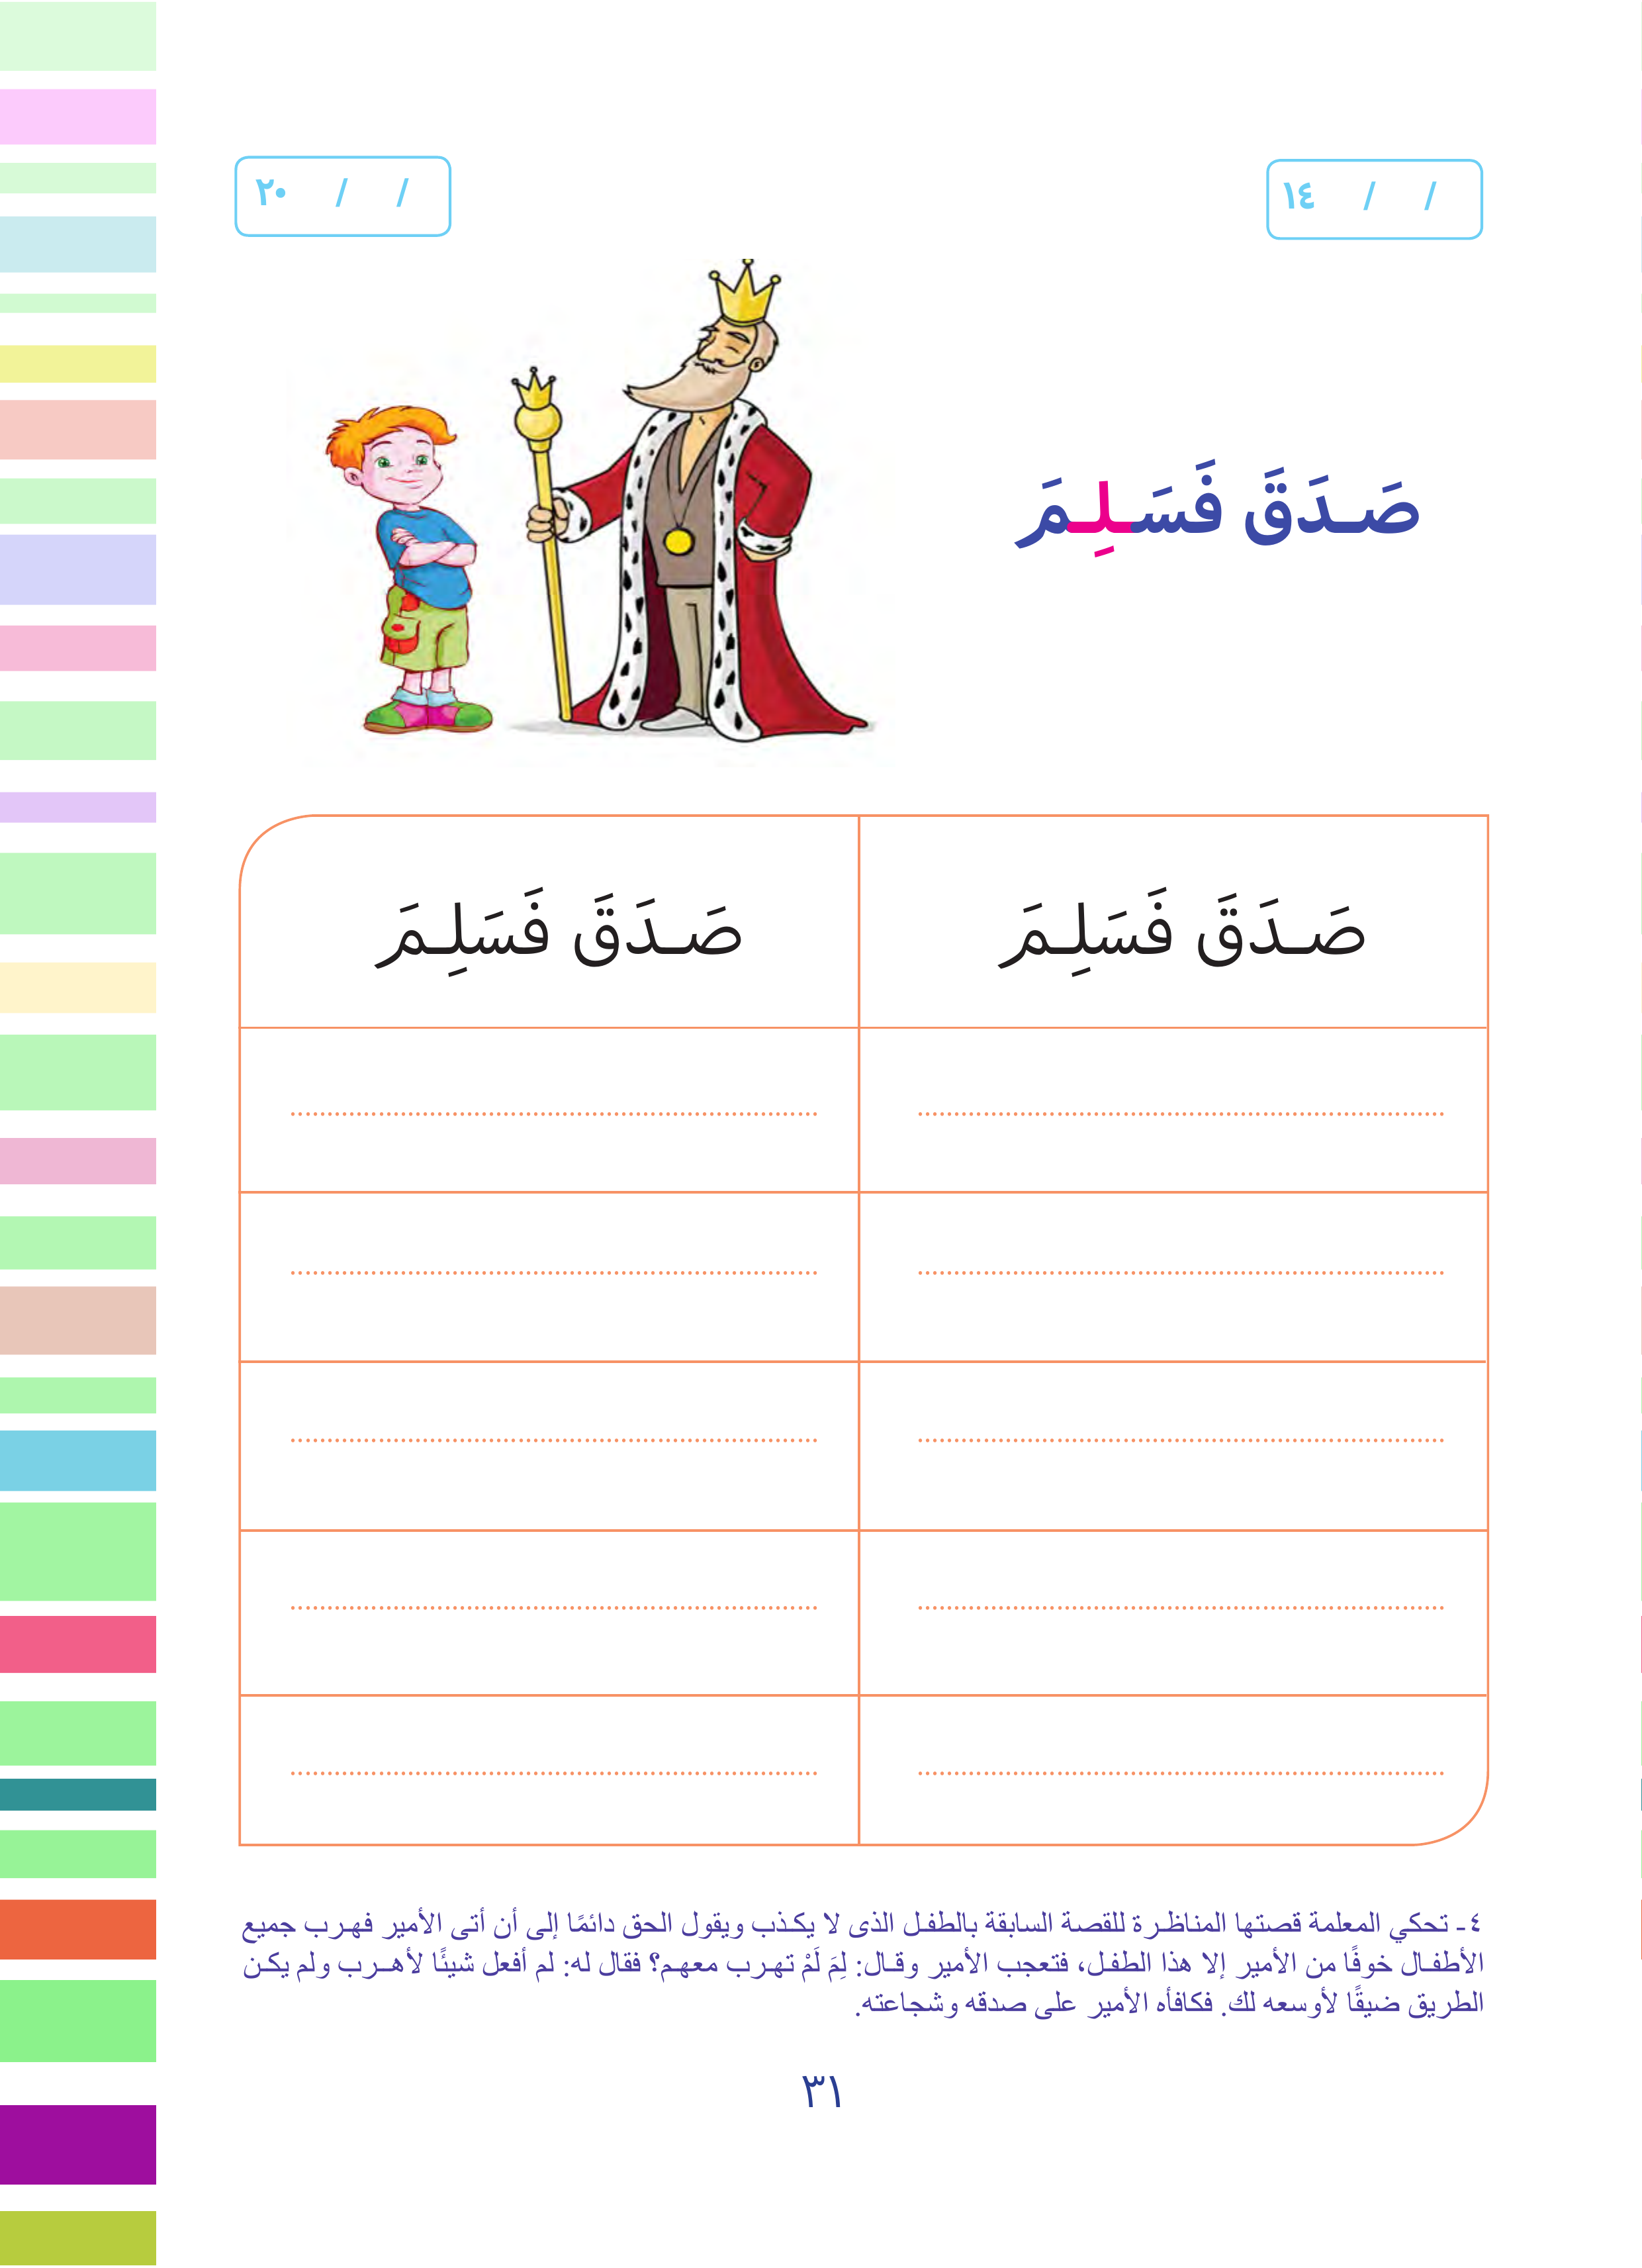 ١٤ / /
٢٠ / /
صَـدَقَ فَسَـلِـمَ
صَـدَقَ فَسَلِـمَ
صَـدَقَ فَسَلِـمَ
٤- تحكي المعلمة قصتها المناظـرة للقصة السابقة بالطفـل الذى لا يكـذب ويقول الحق دائمًا إلى أن أتى الأمير فهـرب جميع
الأطفـال خوفًا من الأمير إلا هذا الطفـل، فتعجب الأمير وقـال: لِمَ لَمْ تهـرب معهـم؟ فقال له: لم أفعل شيئًا لأهــرب ولم يكـن
الطريق ضيقًا لأوسعه لك. فكافأه الأمير على صدقه وشجاعته.
٣١